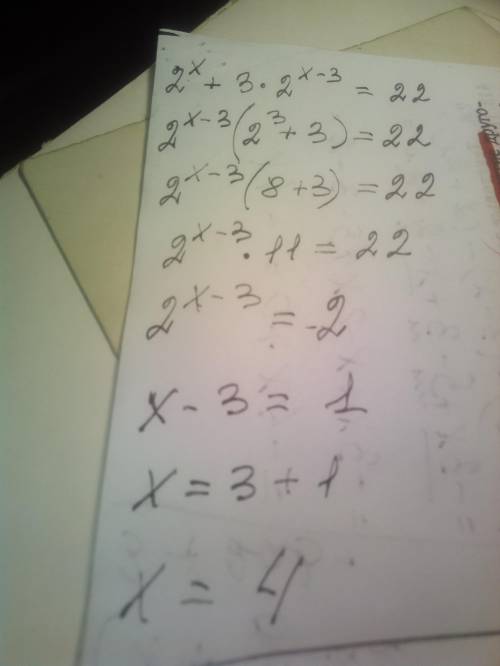 2^x + 3 · 2^{x-3} = 22
2^{x-3}(2^3 + 3) = 22
2^{x-3}(8 + 3) = 22
2^{x-3} · 11 = 22
2^{x-3} = 2
x - 3 = 1
x = 3 + 1
x = 4